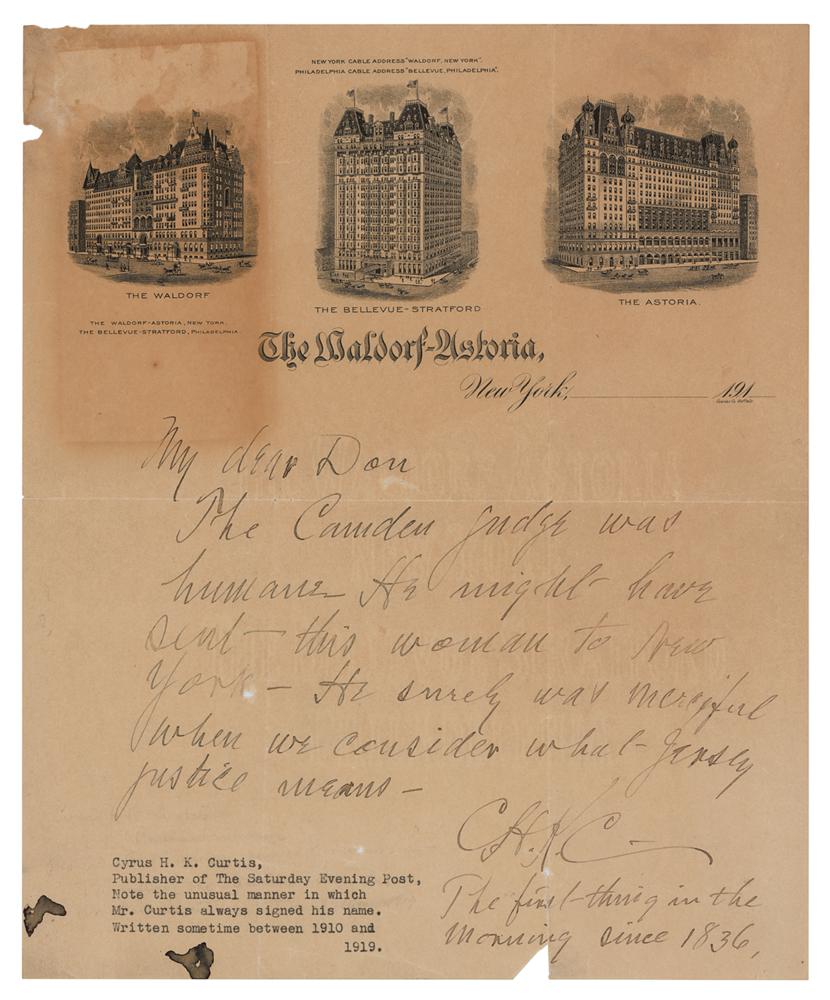 NEW YORK CABLE ADDRESS "WALDORF, NEW YORK".
PHILADELPHIA CABLE ADDRESS "BELLEVUE, PHILADELPHIA".
THE WALDORF
THE BELLEVUE-STRATFORD
THE ASTORIA.
THE WALDORF-ASTORIA, NEW YORK.
THE BELLEVUE-STRATFORD, PHILADELPHIA.
The Waldorf-Astoria,
New York, 191
My dear Don
The Camden judge was
humane He might have
sent this woman to New
York – He surely was merciful
when we consider what Jersey
justice means –
C.H.K.C.
The first thing in the
morning since 1836.
Cyrus H. K. Curtis,
Publisher of The Saturday Evening Post,
Note the unusual manner in which
Mr. Curtis always signed his name.
Written sometime between 1910 and
1919.